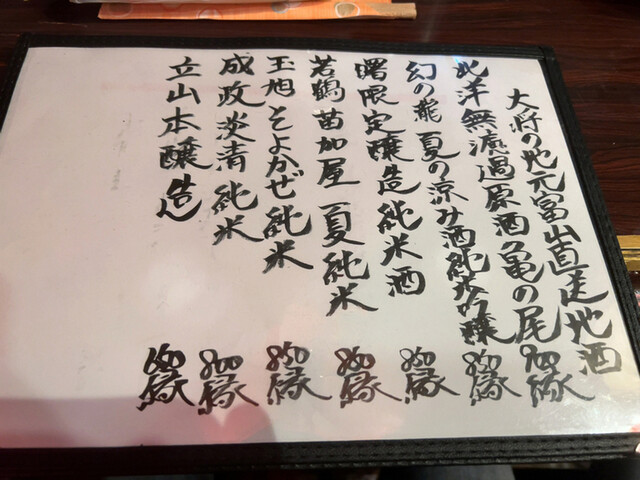 大将の地元富山直送地酒
北洋無濾過原酒亀の尾 900縁
幻の瀧 夏の涼み酒純米吟醸 950縁
曙限定醸造純米酒 800縁
若鶴 苗加屋 夏純米 900縁
玉旭 そよかぜ純米 850縁
成政 炎清 純米 800縁
立山本醸造 600縁